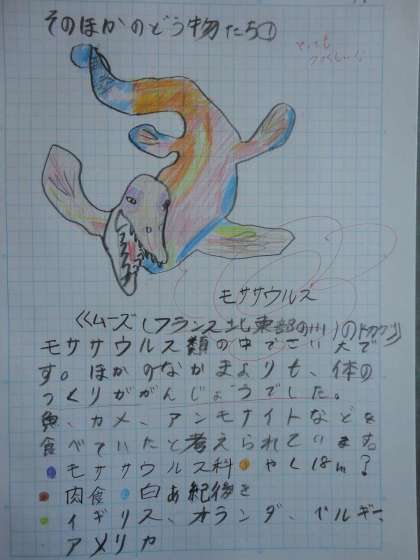 そのほかのどう物たち①
とっても
モササウルス
≪ムーズ(フランス北東部の川)のトカゲ≫
モササウルス類の中でさい大で
す。ほかのなかまよりも、体の
つくりががんじょうでした。
魚、カメ、アンモナイトなどを
食べていたと考えられています。
モササウルス科 やく18m?
肉食 白あ紀後き
イギリス、オランダ、ベルギー、
アメリカ